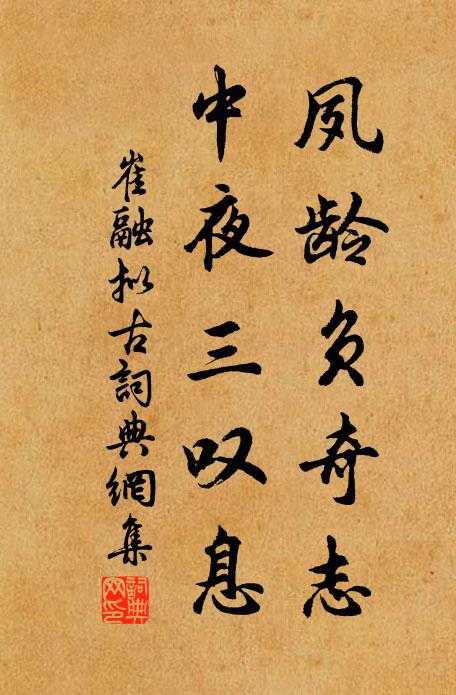 夙龄负奇志
中夜三叹息
崔融拟古詞典網集
詞典网印